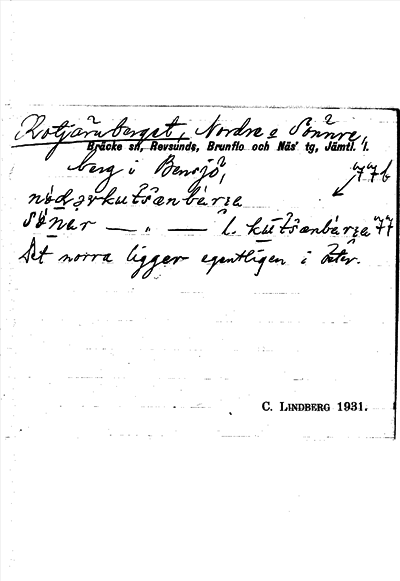 Rotjärnberget, Nordre o Sönnre,
Bräcke sn, Revsunds, Brunflo och Näs' tg, Jämtl. l.
berg i Bensjö, 77b
nødərkutſənbärjə
sønär — „ — l. kutſənbärjə 77
Det norra ligger egentligen i
C. LINDBERG 1931.